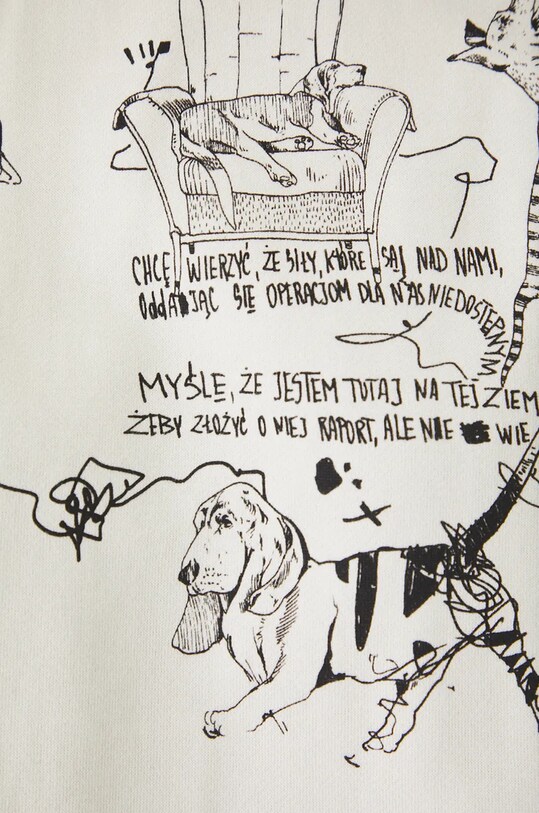 CHCĘ WIERZYĆ, ŻE SIŁY, KTÓRE SĄ NAD NAMI,
ODDAJĄC SIĘ OPERACJOM DLA NAS NIEDOSTĘPNYM
MYŚLĘ, ŻE JESTEM TUTAJ NA TEJ ZIEM
ŻEBY ZŁOŻYĆ O NIEJ RAPORT, ALE NIE WIE